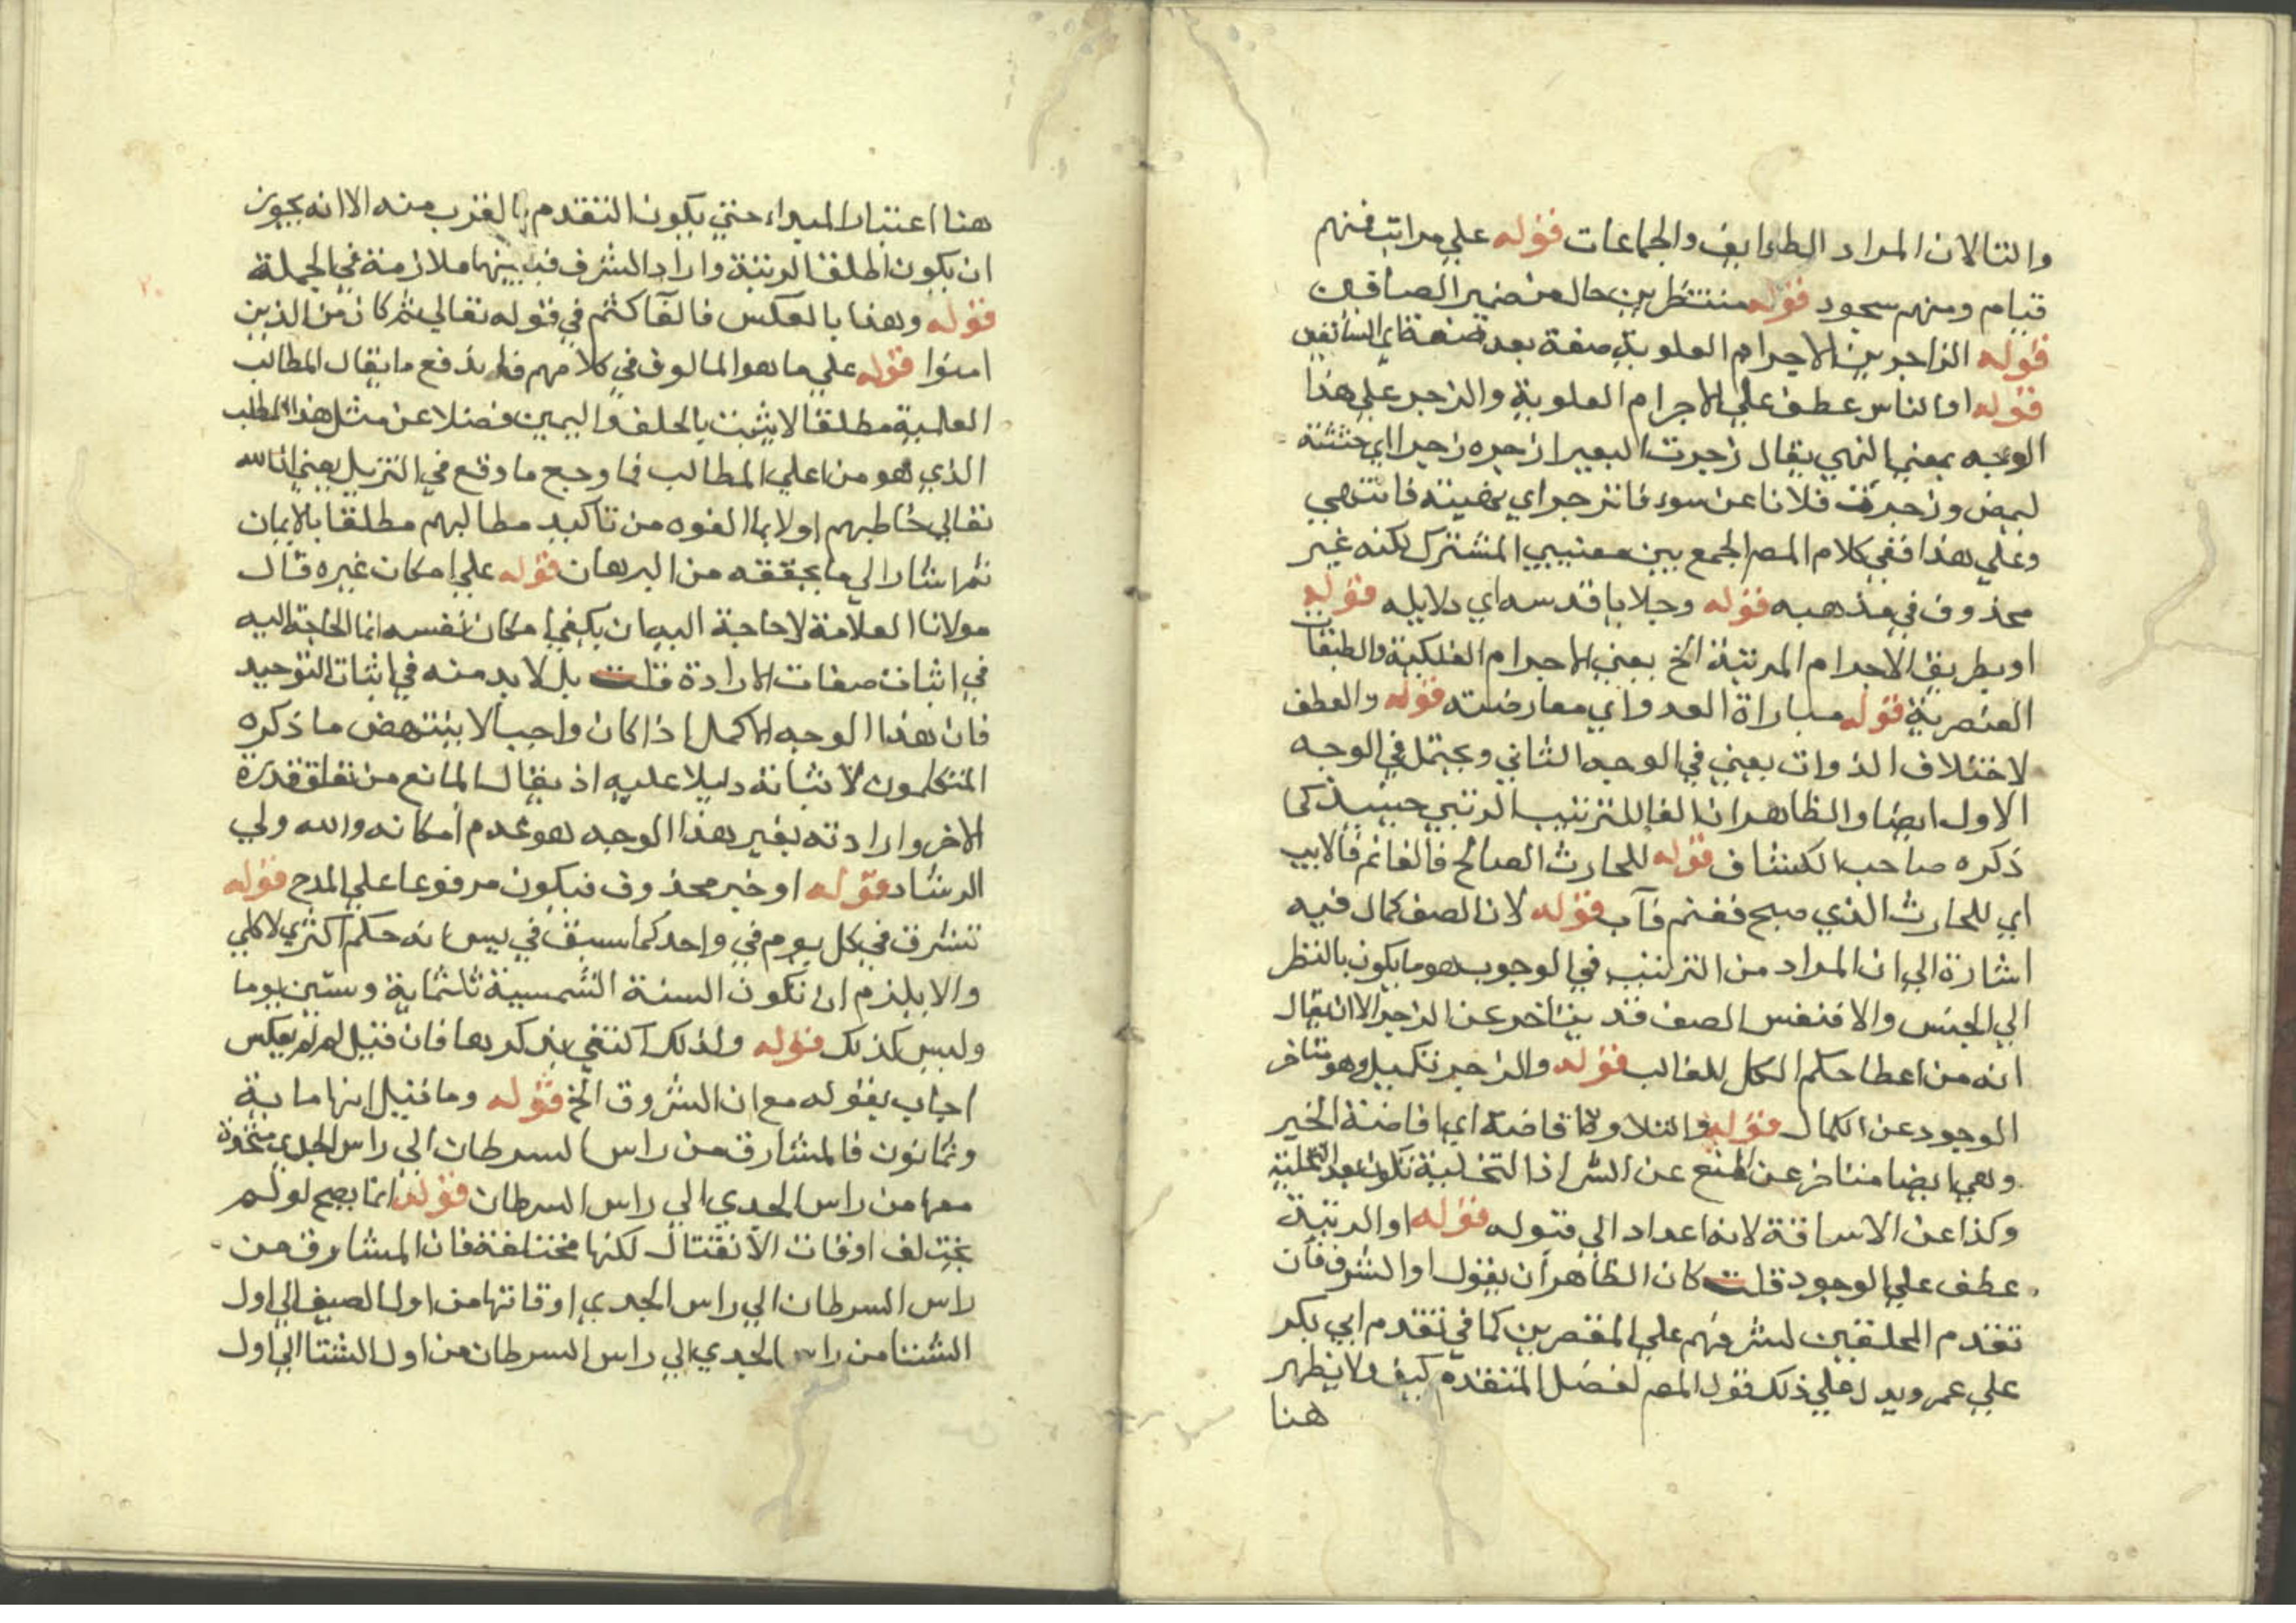 والتا لان المراد الطوايف والجماعات قوله علي مراتب فمنهم
قيام ومنهم سجود قوله منتظرين حال من ضمير الصافين
قوله الزاجرين الاجرام العلوية صفة بعد صفة اي السائقين
قوله او الناس عطف علي الاجرام العلوية والزجر علي هذا
الوجه بمعني النهي يقال زجرت البعير ازجره زجرا اي حثثته
ليمض وزجرت فلانا عن سوء فانزجر اي نهيته فانتهي
وعلي هذا ففي كلام المص الجمع بين معنيي المشترك لكنه غير
محذوف في مذهبه قوله وجلايا قدسه اي دلايله قوله
او بطريق الاجرام المرتبة الخ يعني الاجرام الفلكية والطبقات
العنصرية قوله مباراة العدو اي معارضته قوله والعطف
لاختلاف الذوات يعني في الوجه الثاني ويحتمل في الوجه
الاول ايضا والظاهر ان الفا للترتيب الرتبي حينيذ كما
ذكره صاحب الكشاف قوله للحارث الصالح فالغانم فالايب
اي للحارث الذي صبح فغنم فآب قوله لان الصف كمال فيه
اشارة الي ان المراد من الترتيب في الوجوب هو ما يكون بالنظر
الي الجنس والا فنفس الصف قد يتاخر عن الزجر الا ان يقال
انه من اعطا حكم الكل للغالب قوله والزجر تكميل وهو متاخر
الوجود عن الكمال قوله والتلاوة افاضة اي افاضة الخير
وهي ايضا متاخر عن المنع عن الشر اذ التخلية تكون بعد التحلية
وكذا عن الاساقة لانه اعداد الي قبوله قوله او الرتبة
عطف علي الوجود قلت كان الظاهر ان يقول او الشرف فان
تقدم المحلقين لشرفهم علي المقصرين كما في تقدم ابي بكر
علي عمر ويدل علي ذلك قول المص لفضل المتقدم كيف ولا يظهر
هنا
هنا اعتبار المبداء حتي يكون التقدم بالقرب منه الا انه يجوز
ان يكون اطلق الرتبة واراد الشرف فبينهما ملازمة في الجملة
قوله وهذا بالعكس فالفا كثم في قوله تعالي ثم كان من الذين
امنوا قوله علي ما هو المالوف في كلامهم فلم يدفع ما يقال المطالب
العالية مطلقا لا يثبت بالحلف واليمين فضلا عن مثل هذا المطلب
الذي هو من اعلي المطالب فما وجه ما وقع في التنزيل يعني ان الله
تعالي خاطبهم اولا بما الفوه من تاكيد مطالبهم مطلقا بالايمان
ثم اشار الي ما يحققه من البرهان قوله علي امكان غيره قال
مولانا العلامة لا حاجة اليه ان يكفي امكان نفسه انما الحاجة اليه
في اثبات صفات الارادة قلت بل لا بد منه في اثبات التوحيد
فان هذا الوجه الاكمل اذا كان واجبا لا ينتهض ما ذكره
المتكلمون لاثباته دليلا عليه اذ يقال المانع من تعلق قدرة
الاخر وارادته بغير هذا الوجه هو عدم امكانه والله ولي
الرشاد قوله او خبر محذوف فيكون مرفوعا علي المدح قوله
تشرق في كل يوم في واحد كما سبق في يس انه حكم اكثري لا كلي
والا يلزم ان تكون السنة الشمسية ثلثماية وستين يوما
وليس كذلك قوله ولذلك اكتفي بذكرها فان قيل لم لم يعكس
اجاب بقوله مع ان الشروق الخ قوله وما قيل انها ماية
وثمانون فالمشارق من راس السرطان الي راس الجدي متحدة
معها من راس الجدي الي راس السرطان قوله انما يصح لو لم
يختلف اوقات الانتقال لكنها مختلفة فان المشارق من
راس السرطان الي راس الجدي اوقاتها من اول الصيف الي اول
الشتا من راس الجدي الي راس السرطان من اول الشتا الي اول